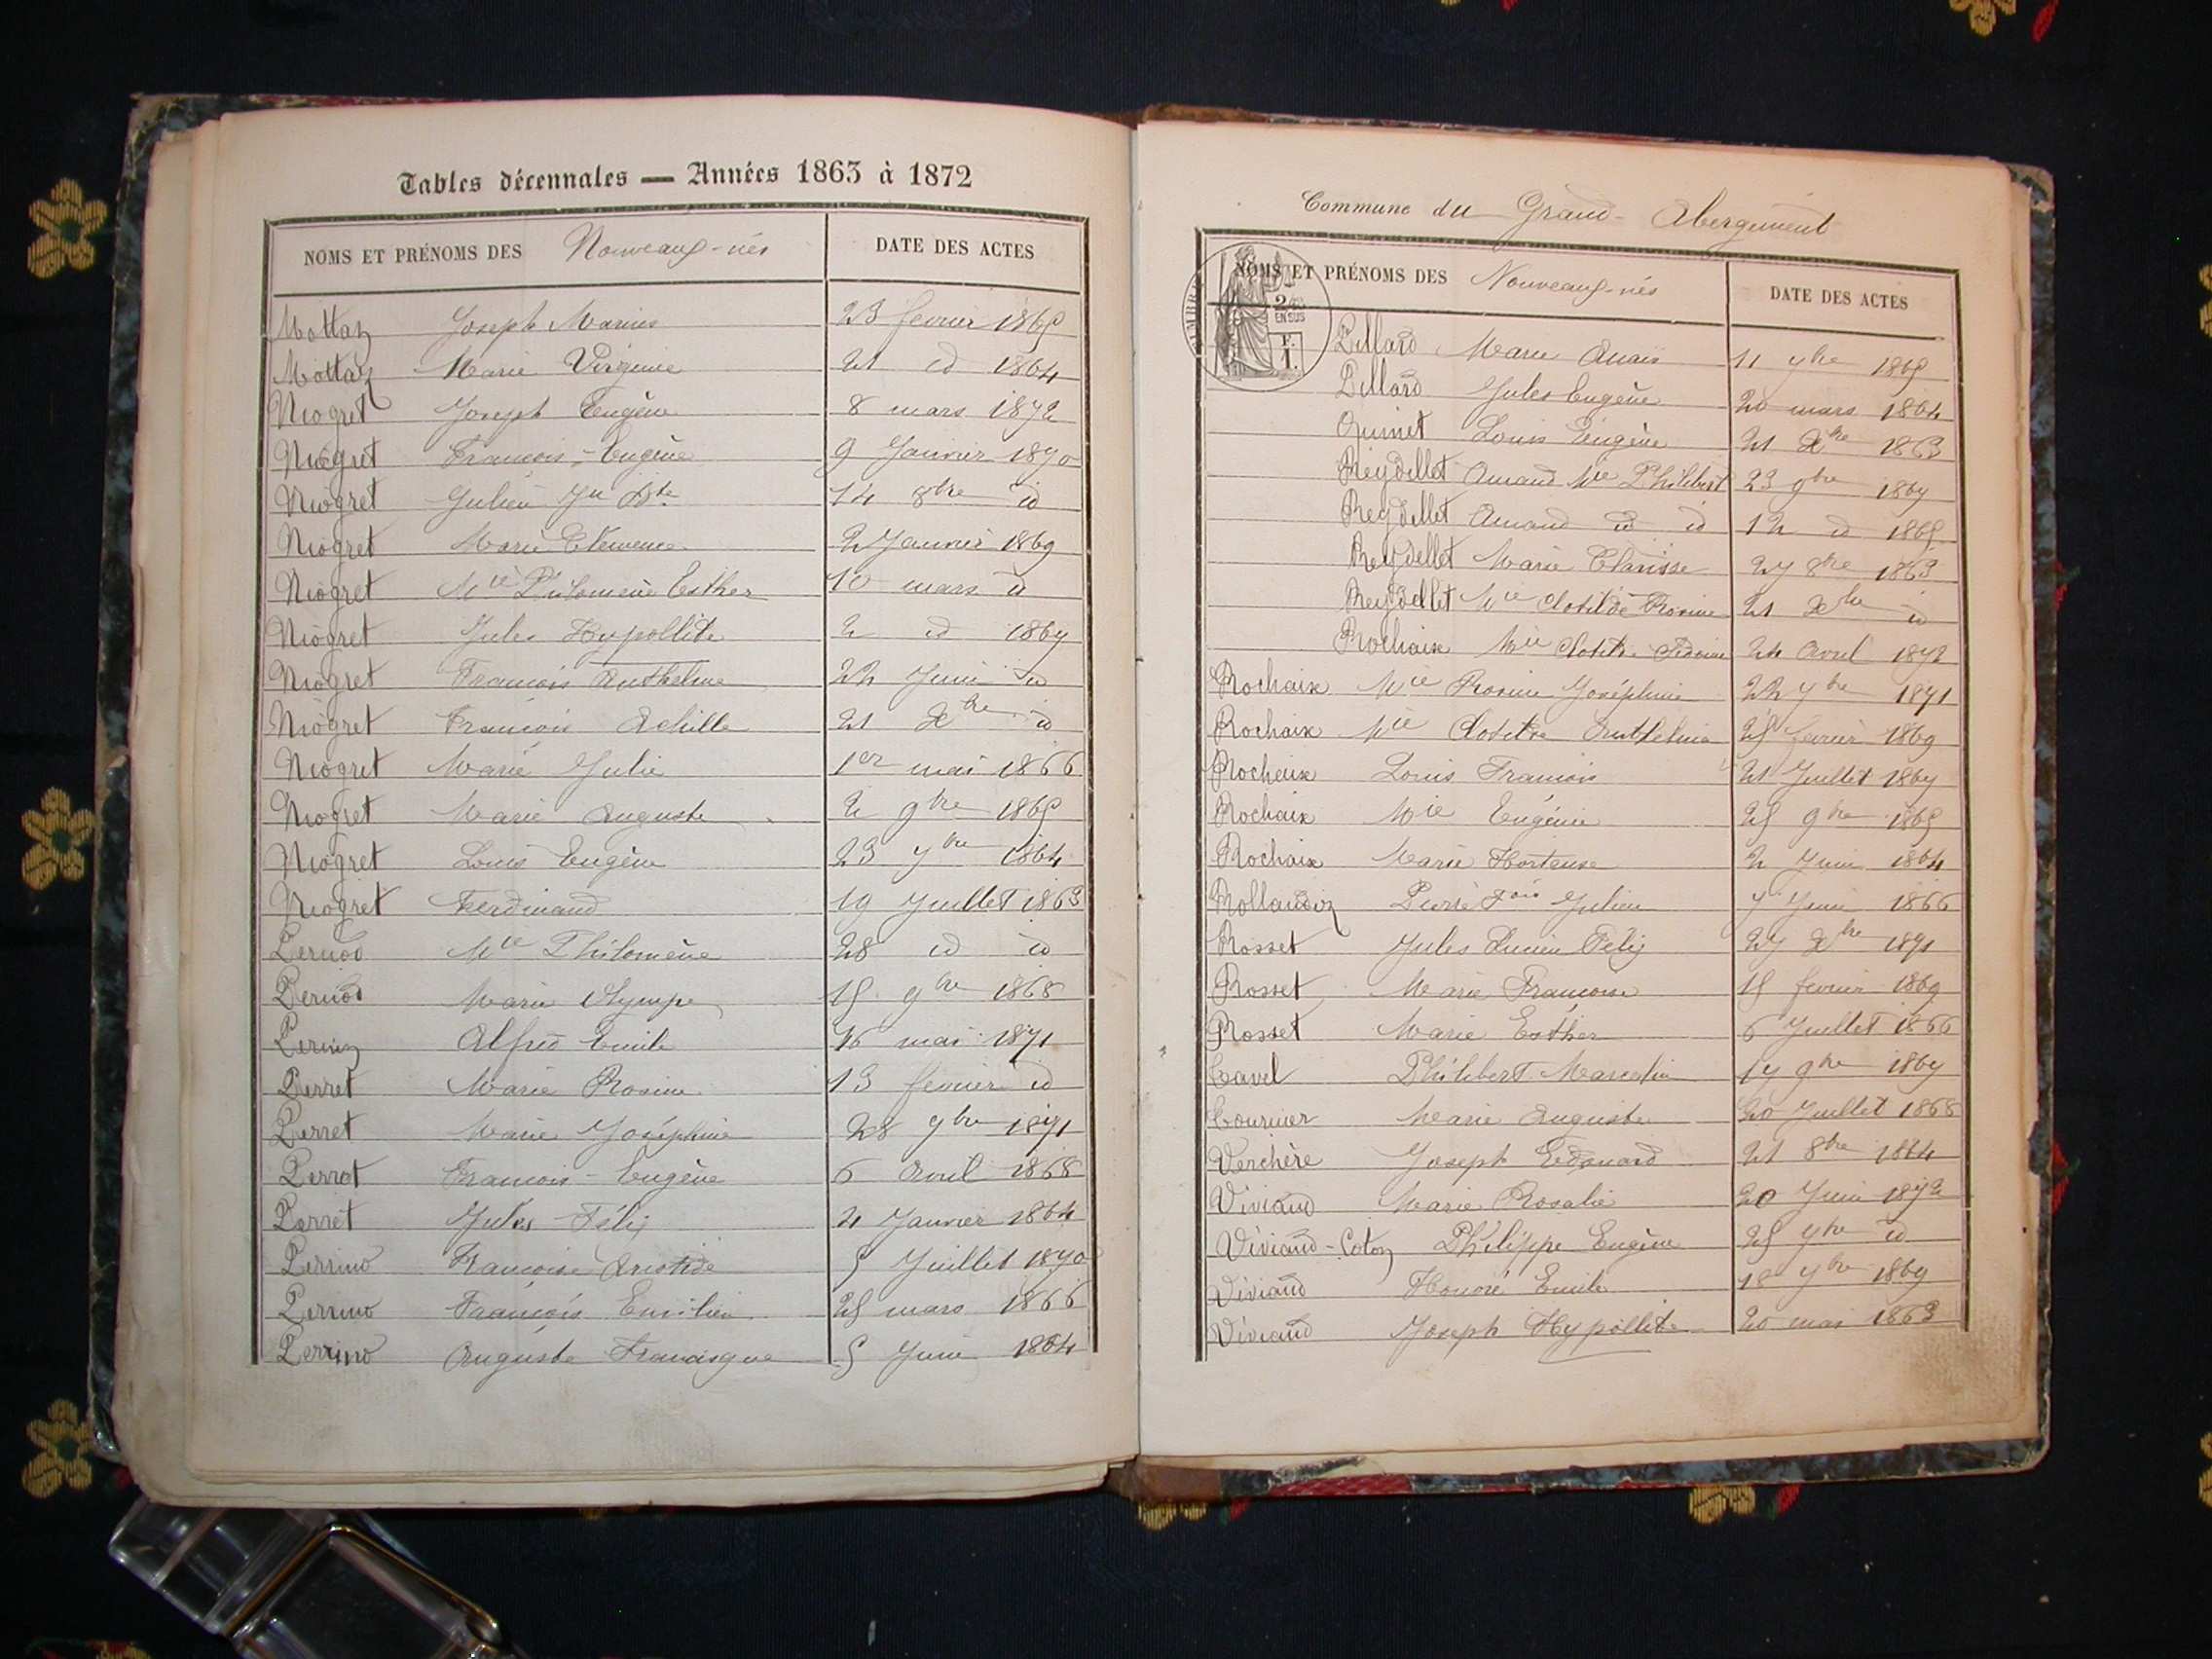 Tables décennales — Années 1863 à 1872
NOMS ET PRÉNOMS DES Nouveaux-nés DATE DES ACTES
Mottaz Joseph Marius 23 fevrier 1865
Mottaz Marie Virginie 21 id 1864
Niogret Joseph Eugène 8 mars 1872
Niogret Francois-Eugène 9 Janvier 1870
Niogret Julien Jn Bte 14 8bre id
Niogret Marie Clemence 2 Janvier 1869
Niogret Mie Philomène Esther 10 mars id
Niogret Jules Hypollite 2 id 1867
Niogret Francois Anthelme 22 Juin id
Niogret Francois Achille 21 Xbre id
Niogret Marie Julie 1er mai 1866
Niogret Marie Auguste 2 9bre 1865
Niogret Louis Eugène 23 7bre 1864
Niogret Ferdinand 19 Juillet 1863
Pernod Mie Philomène 28 id id
Pernod Marie Olympe 15 9bre 1868
Perniz Alfred Emile 16 mai 1871
Perret Marie Rosine 13 fevrier id
Perret Marie Joséphine 28 7bre 1871
Perret Francois-Eugène 6 Avril 1868
Perret Jules-Félix 4 Janvier 1864
Perrino Francoise Aristide 5 Juillet 1870
Perrino Francois Emilien 25 mars 1866
Perrino Auguste Francisque 5 Juin 1864
Commune du Grand-Abergement
TIMBRE
2/10 EN SUS
F. 1.
NOMS ET PRÉNOMS DES Nouveaux-nés DATE DES ACTES
Pillard Marie Anais 11 7bre 1865
Pillard Jules Eugène 20 mars 1864
Quinet Louis Eugène 21 Xbre 1863
Reydellet Amand Mie Philibert 23 9bre 1867
Reydellet Amand id id 12 id 1865
Reydellet Marie Clarisse 27 8bre 1863
Reydellet Mie Clotilde Rosine 21 Xbre id
Rochaix Mie 24 Avril 1872
Rochaix Mie Rosine Joséphine 22 7bre 1871
Rochaix Mie Clotilde Anthelmie 25 fevrier 1869
Rochaix Louis Francois 21 Juillet 1867
Rochaix Mie Eugénie 25 9bre 1865
Rochaix Marie Hortense 2 Juin 1864
Rollandoz Pierre Fois Julien 7 Juin 1866
Rosset Jules Lucien Felix 27 Xbre 1871
Rosset Marie Francoise 15 fevrier 1869
Rosset Marie Esther 6 Juillet 1866
Tavel Philibert Marcelin 17 9bre 1867
Tournier Marie Auguste 20 Juillet 1868
Verchère Joseph Edouard 21 8bre 1864
Viviand Marie Rosalie 20 Juin 1872
Viviand-Coton Philippe Eugène 25 7bre id
Viviand Honoré Emile 18 7bre 1869
Viviand Joseph Hypollite 20 mai 1863